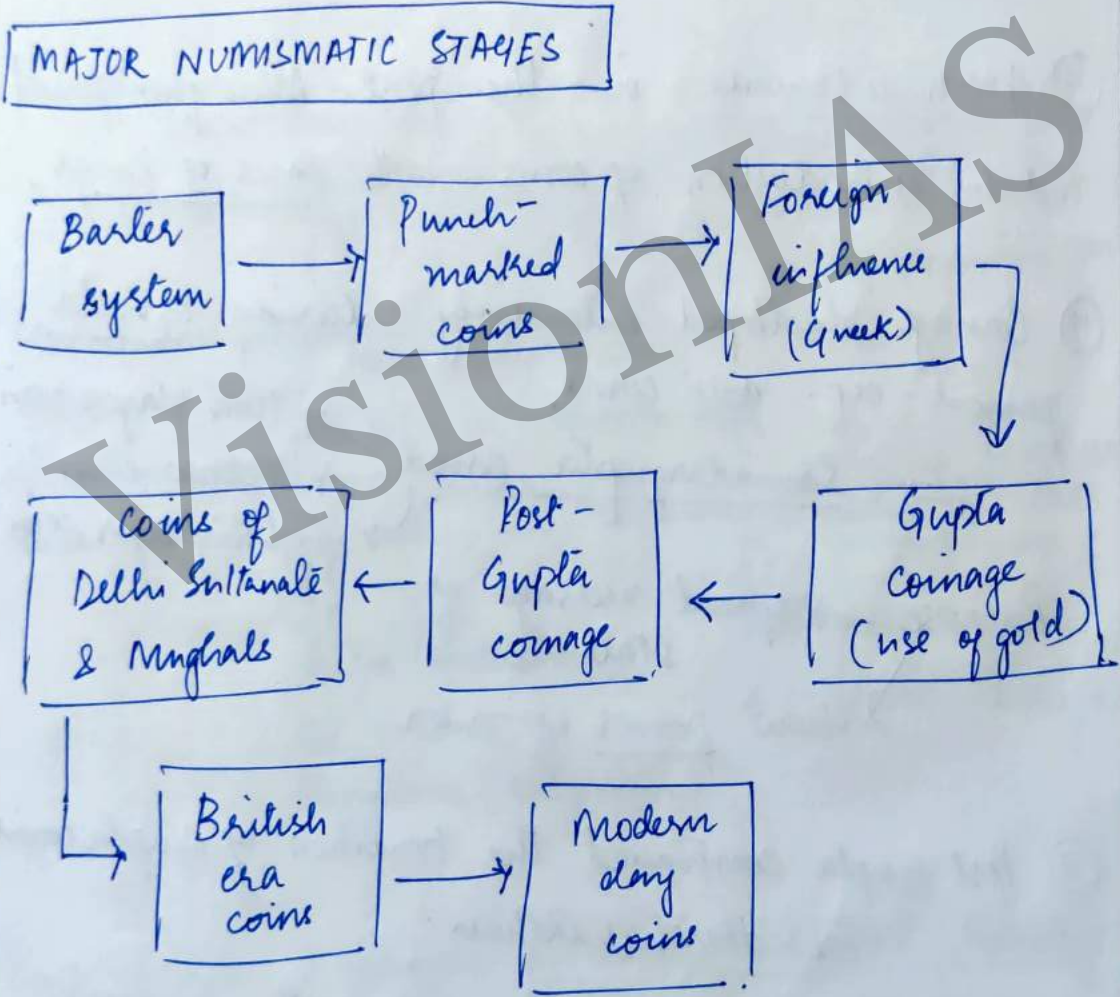 MAJOR NUMISMATIC STAGES
Barter
system
Punch-
marked
coins
Foreign
influence
(Greek)
Gupta
coinage
(use of gold)
Post-
Gupta
coinage
coins of
Delhi Sultanate
& Mughals
British
era
coins
Modern
day
coins
VisionIAS